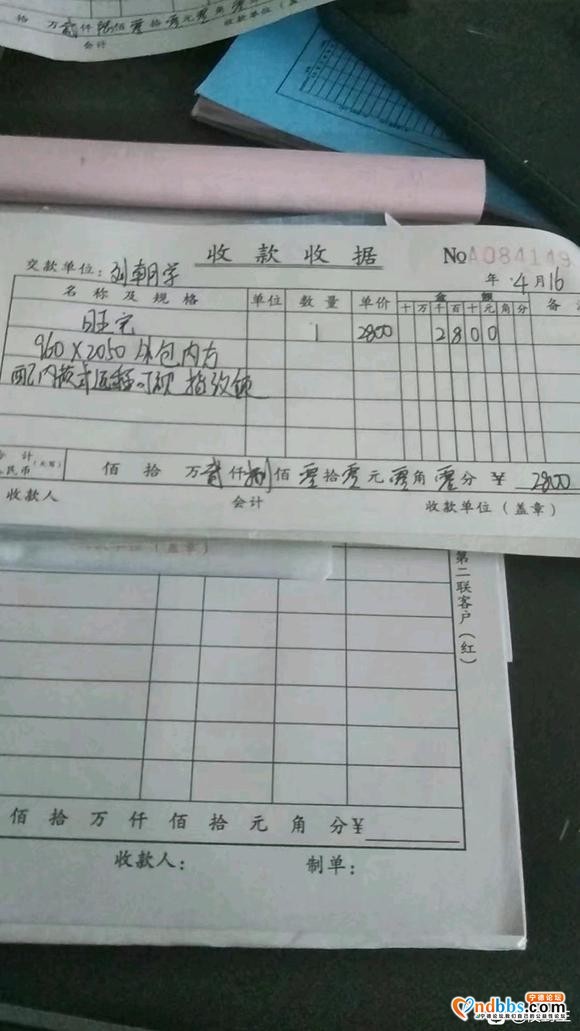 拾 万 贰 仟 陆 佰 零 拾 零 元 零 角 零 分 ¥
会计 收款单位（盖章）
收款收据 No A084149
交款单位：刘朝学 年 4 月 16
名称及规格 单位 数量 单价 金额 备
十 万 千 百 十 元 角 分
旺宅 1 2800 2 8 0 0
960×2050 外包内方
配内模式远程可视 指纹锁
合计 人民币（大写） 佰 拾 万 贰 仟 捌 佰 零 拾 零 元 零 角 零 分 ¥ 2800
收款人 会计 收款单位（盖章）
（盖章）
第二联客户（红）
佰 拾 万 仟 佰 拾 元 角 分 ¥
收款人： 制单：
ndbbs.com
宁德论坛